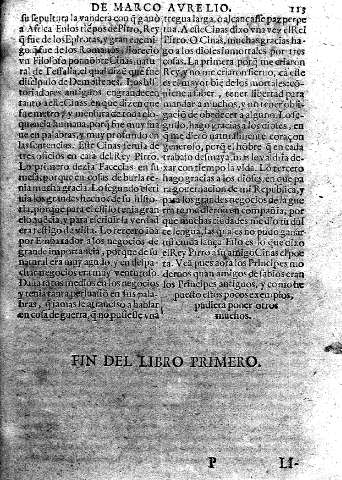 DE MARCO AVRELIO. 113
su sepultura la vandera con q̃ ganò
a Africa. En los tiẽpos de Pirro, Rey
q̃ fue de los Epirotas, y gran enemi
go fue de los Romanos, florecio
vn Filosofo por nõbre Cinas, natu-
ral de Tessalia, el qual dizẽ que fue
discipulo de Demostenes. Los his-
toriadores antiguos engrandecen
tanto a este Cinas, en que dizen que
fue metro y mensura de toda elo-
quencia humana, porq̃ fue muy sua
ue en palabras, y muy profundo en
las sentencias. Este Cinas seruia de
tres oficios en casa del Rey Pirro.
Lo primero dezia Facecias en su
mesa, porque en cosas de burla te-
nia mucha gracia. Lo segundo escri
uia los grandes hechos de su histo-
ria, porque para escriuir tenia gran
eloquencia, y para escriuir la verdad
era testigo de vista. Lo tercero iba
por Embaxador a los negocios de
grande importancia, porque de su
natural era muy agudo, y en despa-
char negocios era muy venturoso.
Daua tantos medios en los negocios
y tenia tanta persuasiõ en sus pala-
bras, q̃ jamas le a franciar a hablar
en cosa de guerra, q̃ no pusiesse vna
tregua larga, ò alcançasse paz perpe
tua. A este Cinas dixo vna vez el Rei
Pirro. O Cinas, muchas gracias ha-
go a los dioses inmortales por tres
cosas. La primera, porq̃ me criaron
Rey, y no me criaron sieruo, ca este
es el mayor bien de los mortales, conuie
ne a saber, tener libertad para
mandar a muchos, y no tener oblig-
acion de obedecer a alguno. Lo segu-
undo, hago gracias a los dioses, en
que me dierõ naturalmente coraçon
generoso, porq̃ el hõbre q̃ en cada
trabajo desmaya, mas le valdria de-
xar con tiempo la vida. Lo tercero
hago gracias a los dioses, en que pa
ra gouernacion de mi Republica, y
para los grandes negocios de la gue
rra, te me dieron en compañia, por
que muchas ciudades me dio tu dul
ce lengua, las quales no pudo ganar
mi cruda lança. Esto es lo que dixo
el Rey Pirro a su amigo Cinas el poe
ta. Vea pues aora los Principes mo
dernos quan amigos de sabios eran
los Principes antiguos, y como he
puesto estos pocos exemplos,
pudiera poner otros
muchos.
FIN DEL LIBRO PRIMERO.
P LI-